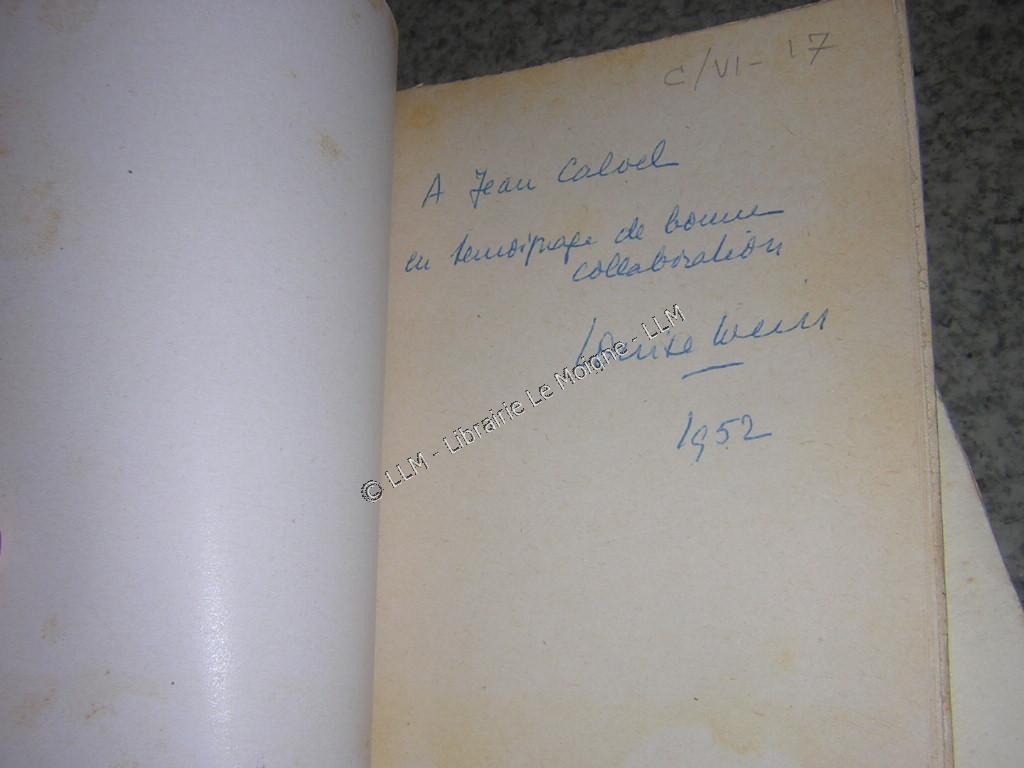 C/VI - 17
A Jean Calvel
en temoignage de bonne
collaboration
Louise Weiss
1952
© LLM - Librairie Le Moigne - LLM